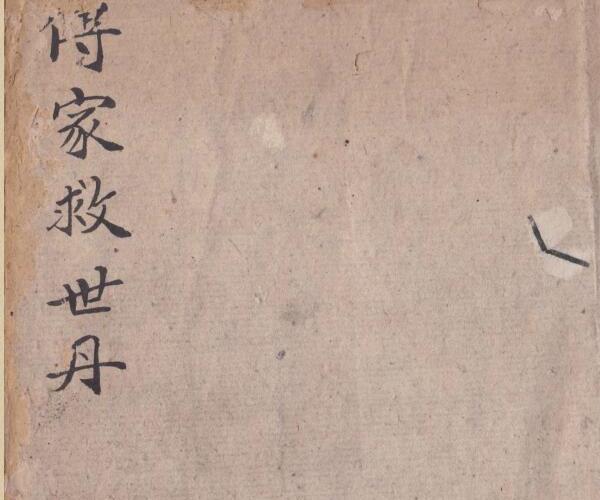 傳家救世丹